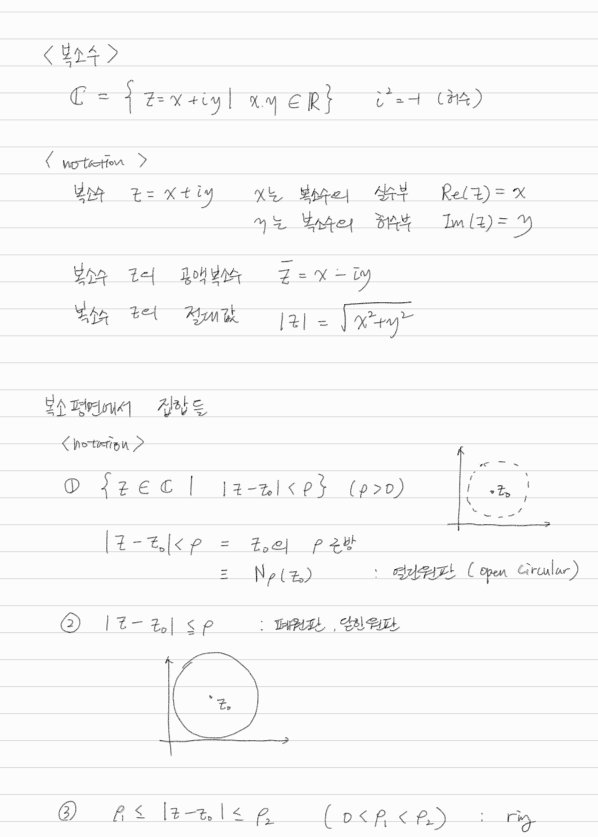 < 복소수 >
ℂ = { z = x + iy | x, y ∈ ℝ } i² = -1 (허수)
< notation >
복소수 z = x + iy x는 복소수의 실수부 Re(z) = x
y는 복소수의 허수부 Im(z) = y
복소수 z의 공액복소수 z̄ = x - iy
복소수 z의 절대값 |z| = √(x²+y²)
복소평면에서 집합들
<notation>
① { z ∈ ℂ | |z-z₀| < ρ } (ρ>0)
·z₀
|z-z₀| < ρ = z₀의 ρ 근방
≡ Nρ(z₀) : 열린원판 (open circular)
② |z-z₀| ≦ ρ : 폐원판, 닫힌원판
·z₀
③ ρ₁ ≤ |z-z₀| ≤ ρ₂ (0<ρ₁<ρ₂) : ring